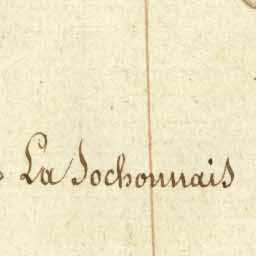 La Sochonnais